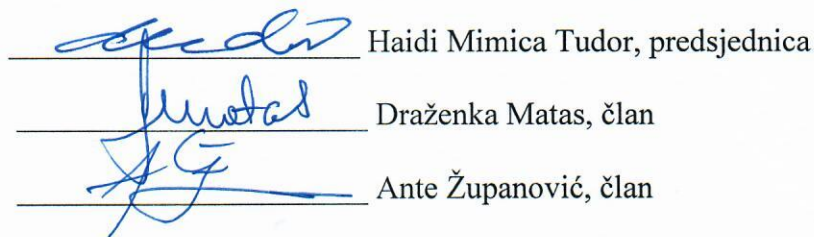 Haidi Mimica Tudor, predsjednica
Matas Draženka Matas, član
Ante Županović, član